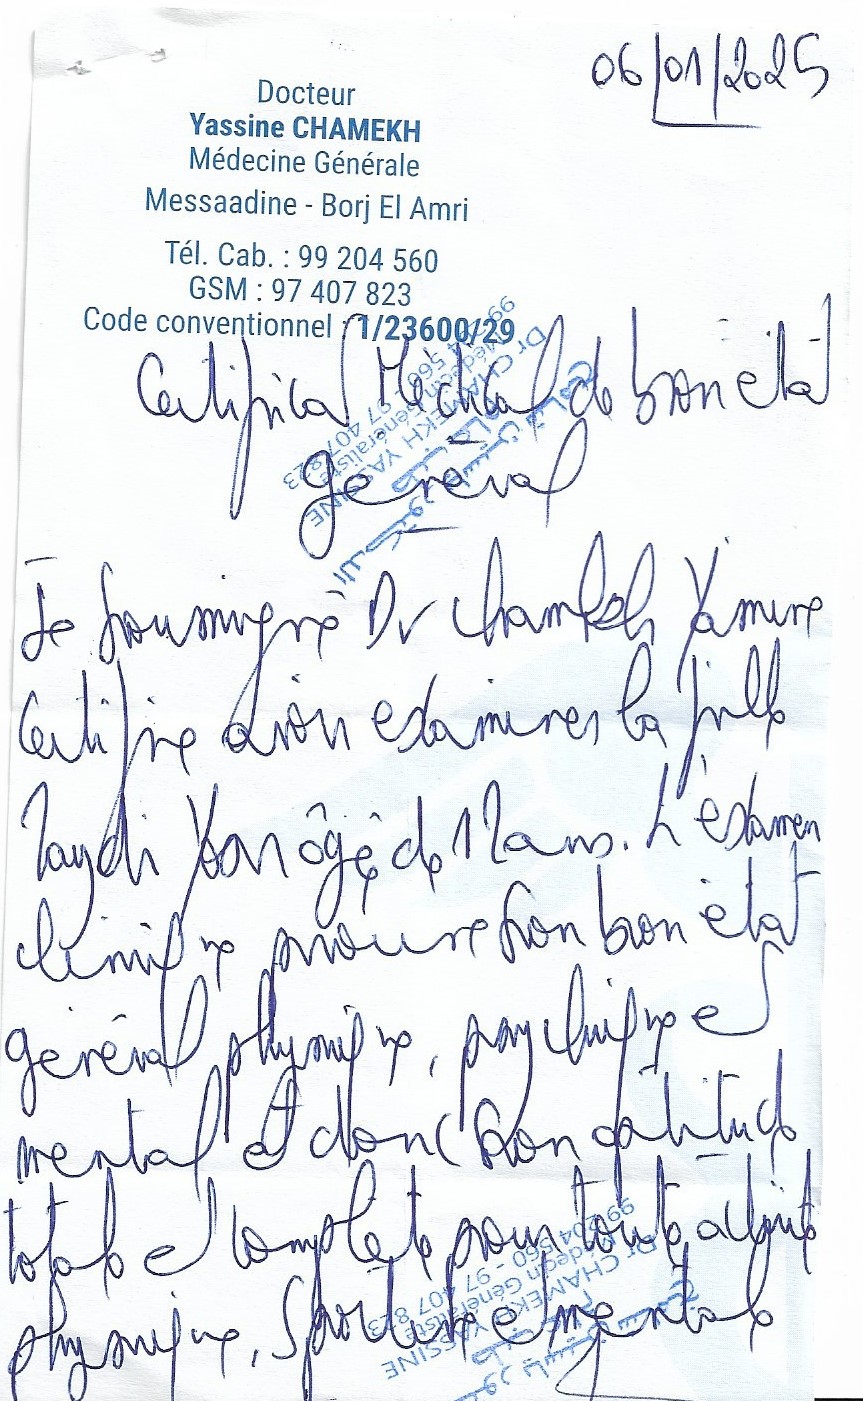 06/01/2025
Docteur
Yassine CHAMEKH
Médecine Générale
Messaadine - Borj El Amri
Tél. Cab. : 99 204 560
GSM : 97 407 823
Code conventionnel : 1/23600/29
Certificat Médical de bon état
général
Je soussigné Dr Chamekh Yassine
Certifie avoir examiner la fille
âgé de 12 ans. L'examen
clinique prouve son bon état
général physique, psychique et
mental et donc son aptitude
totale et complète pour toute activité
physique, Sportive et mentale
Dr CHAMEKH YASSINE
Médecin Généraliste
99 204 560 - 97 407 823
Dr CHAMEKH YASSINE
Médecin Généraliste
99 204 560 - 97 407 823